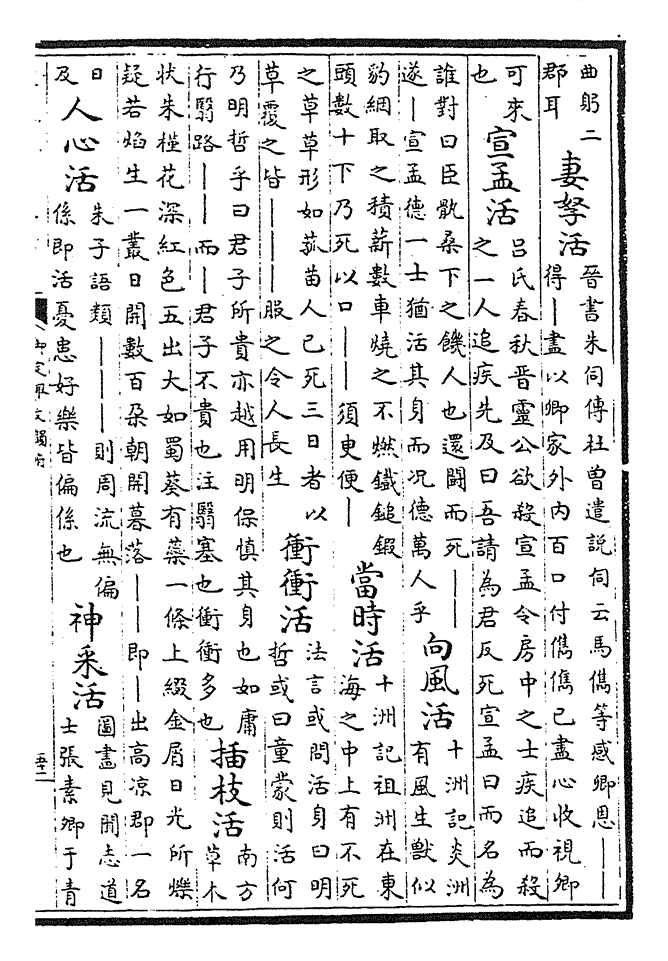 曲躬二
郡耳
妻孥活
晉書朱伺傳杜曾遣説伺云馬儁等感卿恩——
得—盡以卿家外内百口付儁儁已盡心收視卿
可來
也
宣孟活
吕氏春秋晉靈公欲殺宣孟令房中之士疾追而殺
之一人追疾先及曰吾請為君反死宣孟曰而名為
誰對曰臣骫桑下之餓人也還鬭而死——
遂—宣孟德一士猶活其身而况德萬人乎
向風活
十洲記炎洲
有風生獸似
豹網取之積薪數車燒之不燃鐵鎚鍜
頭數十下乃死以口——須臾便—
當時活
十洲記祖洲在東
海之中上有不死
之草草形如菰苗人已死三日者以
草覆之皆———服之令人長生
衝衝活
法言或問活身曰明
哲或曰童蒙則活何
乃明哲乎曰君子所貴亦越用明保慎其身也如庸
行翳路———而—君子不貴也注翳塞也衝衝多也
插枝活
南方
草木
狀朱槿花深紅色五出大如蜀葵有蘂一條上綴金屑日光所爍
疑若焰生一叢日開數百朵朝開暮落——即—出高凉郡一名
日
及
人心活
朱子語類———則周流無偏
係即活憂患好樂皆偏係也
神采活
圖畫見聞志道
士張素卿于青